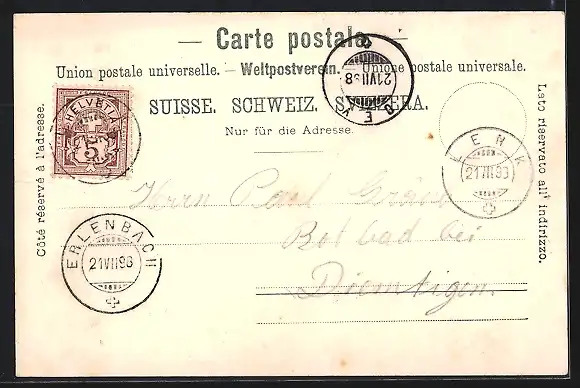 Carte postale.
Union postale universelle. — Weltpostverein. — Unione postale universale.
SUISSE. SCHWEIZ. SVIZZERA.
Nur für die Adresse.
Côté réservé à l'adresse.
Lato riservato all' indirizzo.
HELVETIA
5
21 VII 98
LENK
21 VII 98
ERLENBACH
21 VII 98
Herrn Paul
Rotbad bei
Diemtigen.